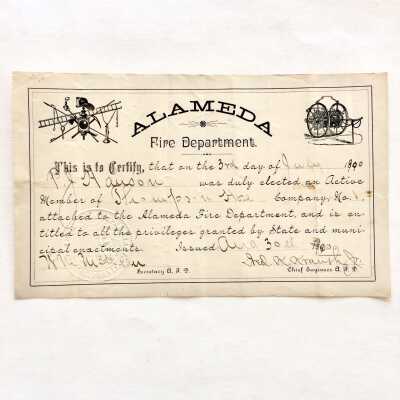 ALAMEDA
Fire Department.
This is to Certify, that on the 3rd day of July 1890
was duly elected an Active
Member of Thompson Hose Company, No. 1,
attached to the Alameda Fire Department, and is en-
titled to all the privileges granted by State and muni-
cipal enactments. Issued Aug 30th 1890
Secretary A. F. D. Chief Engineer A. F. D.